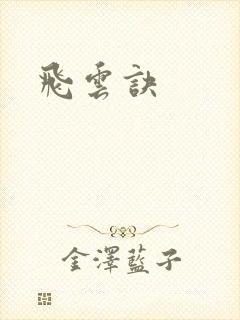 飛雲訣
金澤藍子